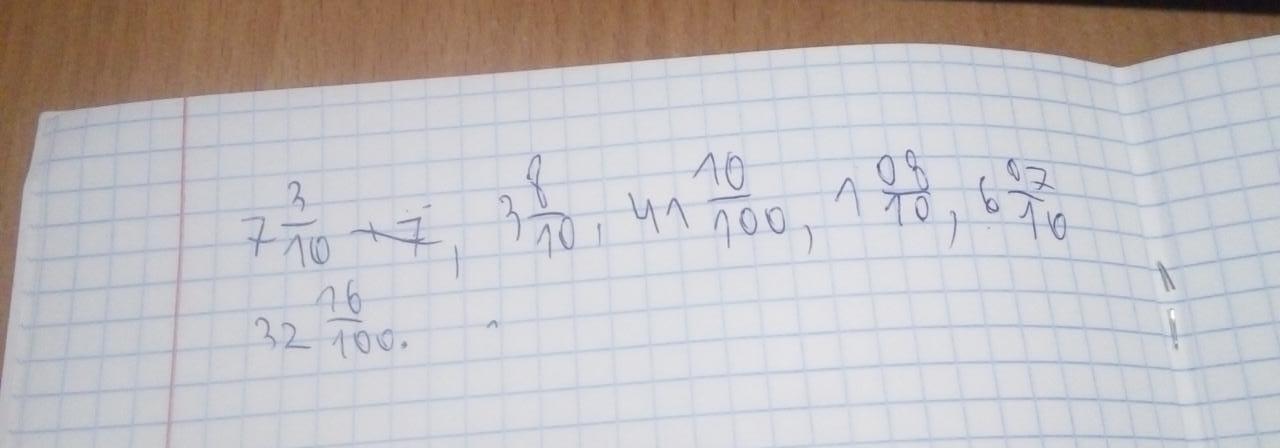 7 3/10, 3 8/10, 41 10/100, 1 08/10, 6 07/10
32 16/100.